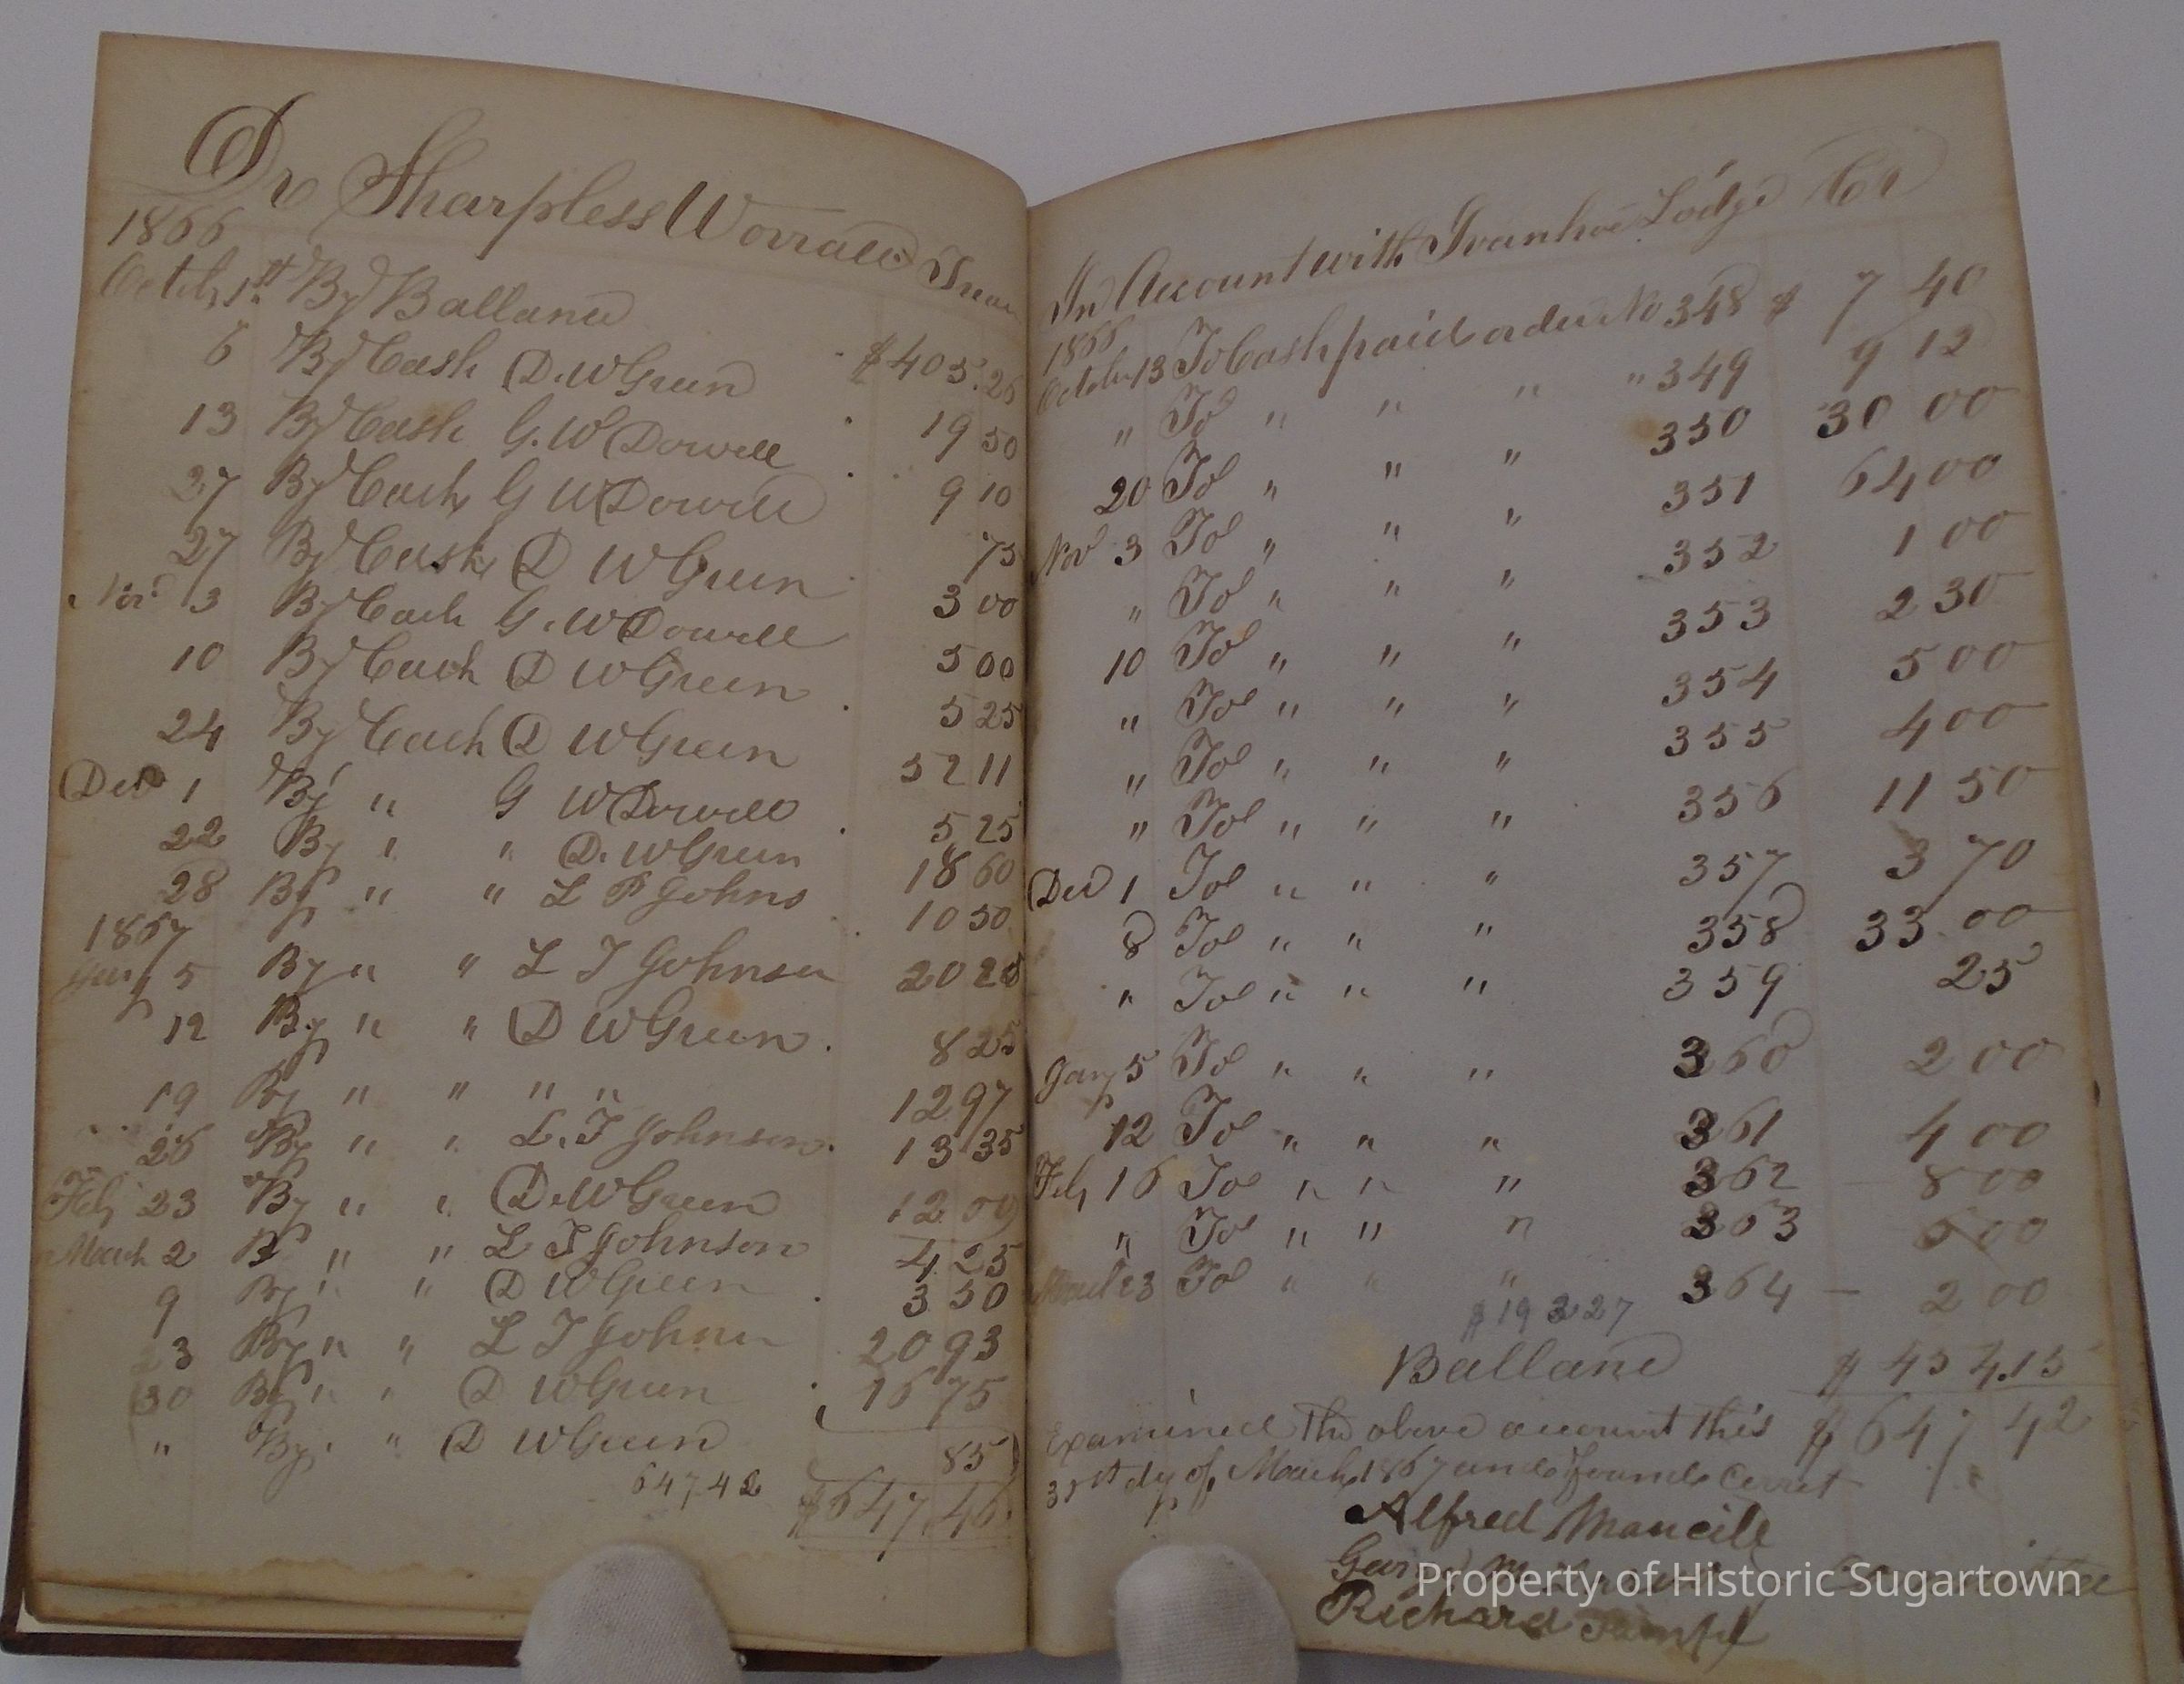 Dr Sharpless Worrall Treas
1866
Octob 1st By Ballance $405.26
6 By Cash D. W Green 19 50
13 By Cash G. W Dowell 9 10
27 By Cash G W Dowell 75
27 By Cash D W Green 3 00
Nov 3 By Cash G. W Dowell 5 00
10 By Cash D W Green 5 25
24 By Cash D W Green 52 11
Dec 1 By " G W Dowell 5 25
22 By " " D. W Green 18 60
28 By " " L T Johns 10 50
1867
Jany 5 By " " L T Johnson 20 25
12 By " " D W Green 8 25
19 By " " " " 12 97
26 By " " L. T Johnson 13 35
Feby 23 By " " D. W Green 12 00
March 2 B " " L T Johnson 4 25
9 By " " D W Green 3 50
23 By " " L T Johnn 20 93
30 By " " D W Green 16 75
" By " " D W Green 85
647.42
$647.46
In Account with Ivanhoe Lodge Cr
1866
October 13 To Cash paid order No 348 $ 7 40
" To " " " " 349 9 12
20 To " " " 350 30 00
Nov 3 To " " " 351 64 00
" To " " " 352 1 00
10 To " " " 353 2 30
" To " " " 354 5 00
" To " " " 355 4 00
" To " " " 356 11 50
Dec 1 To " " " 357 3 70
8 To " " " 358 33 00
" To " " " 359 25
Jany 5 To " " " 360 2 00
12 To " " " 361 4 00
Feby 16 To " " " 362 8 00
" To " " " 363 6 00
March 23 To " " " 364 2 00
$193 27
Ballance $454.15
Examined the above account this $647 42
31st dy of March 1867 and found Corret
Alfred Mancill
Richard
Property of Historic Sugartown